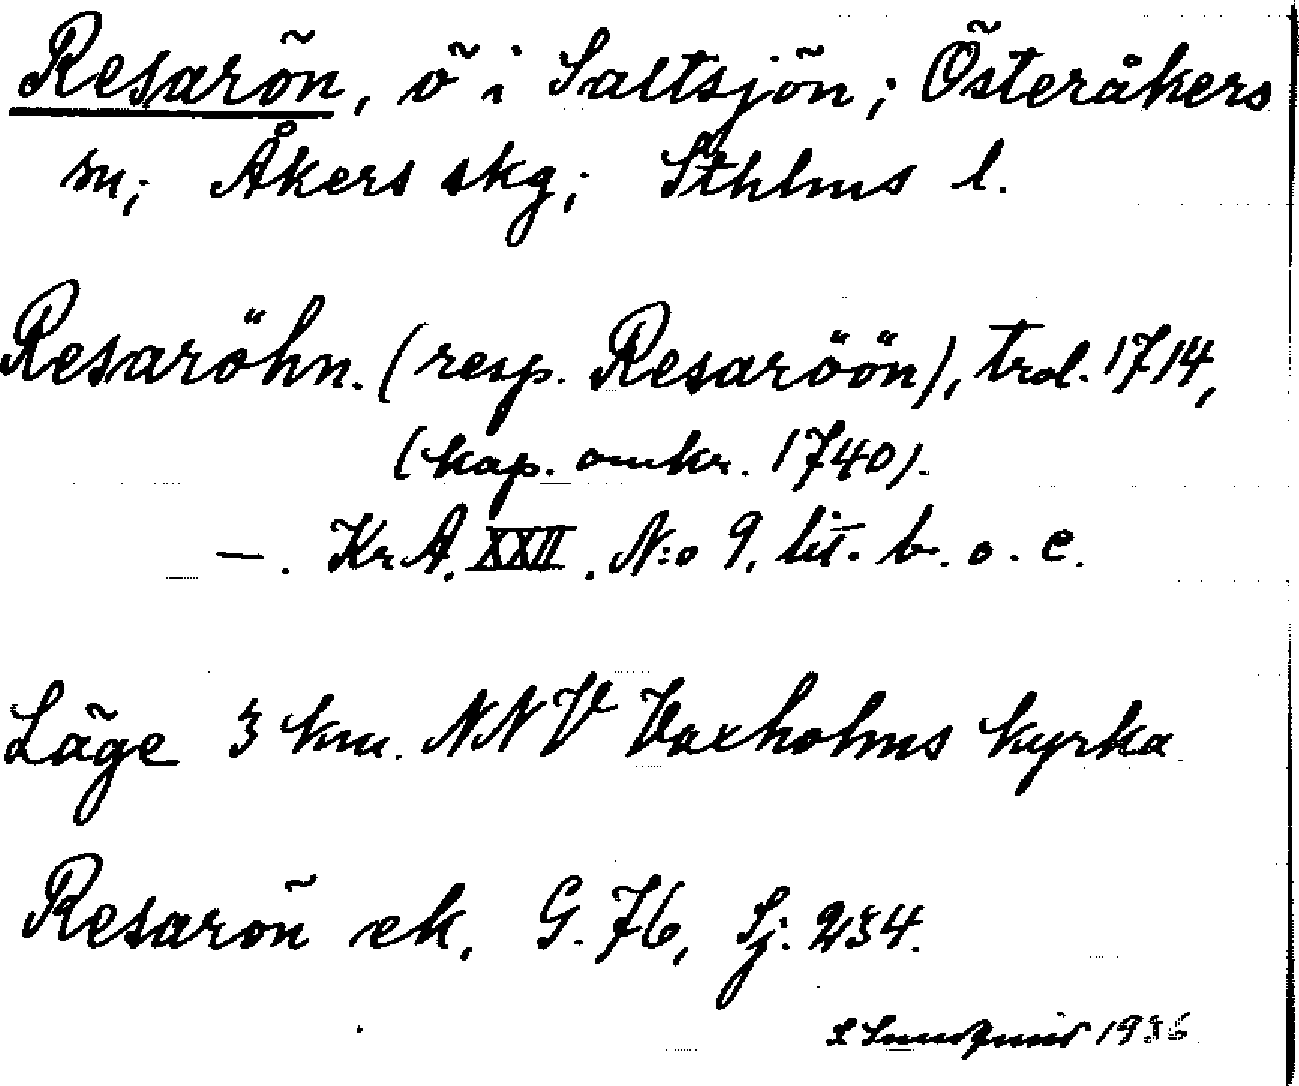 Resarön, ö i Saltsjön; Österåkers
sn; Åkers skg; Sthlms l.
Resaröhn. (resp. Resaröön), trol. 1714,
(kop. omkr. 1740).
—. Kr.A. XXII. N:o 9. lit. b. o. c.
Läge 3 km. NNV Vaxholms kyrka
Resarön ek. G. 76, Sj. 234.
1936